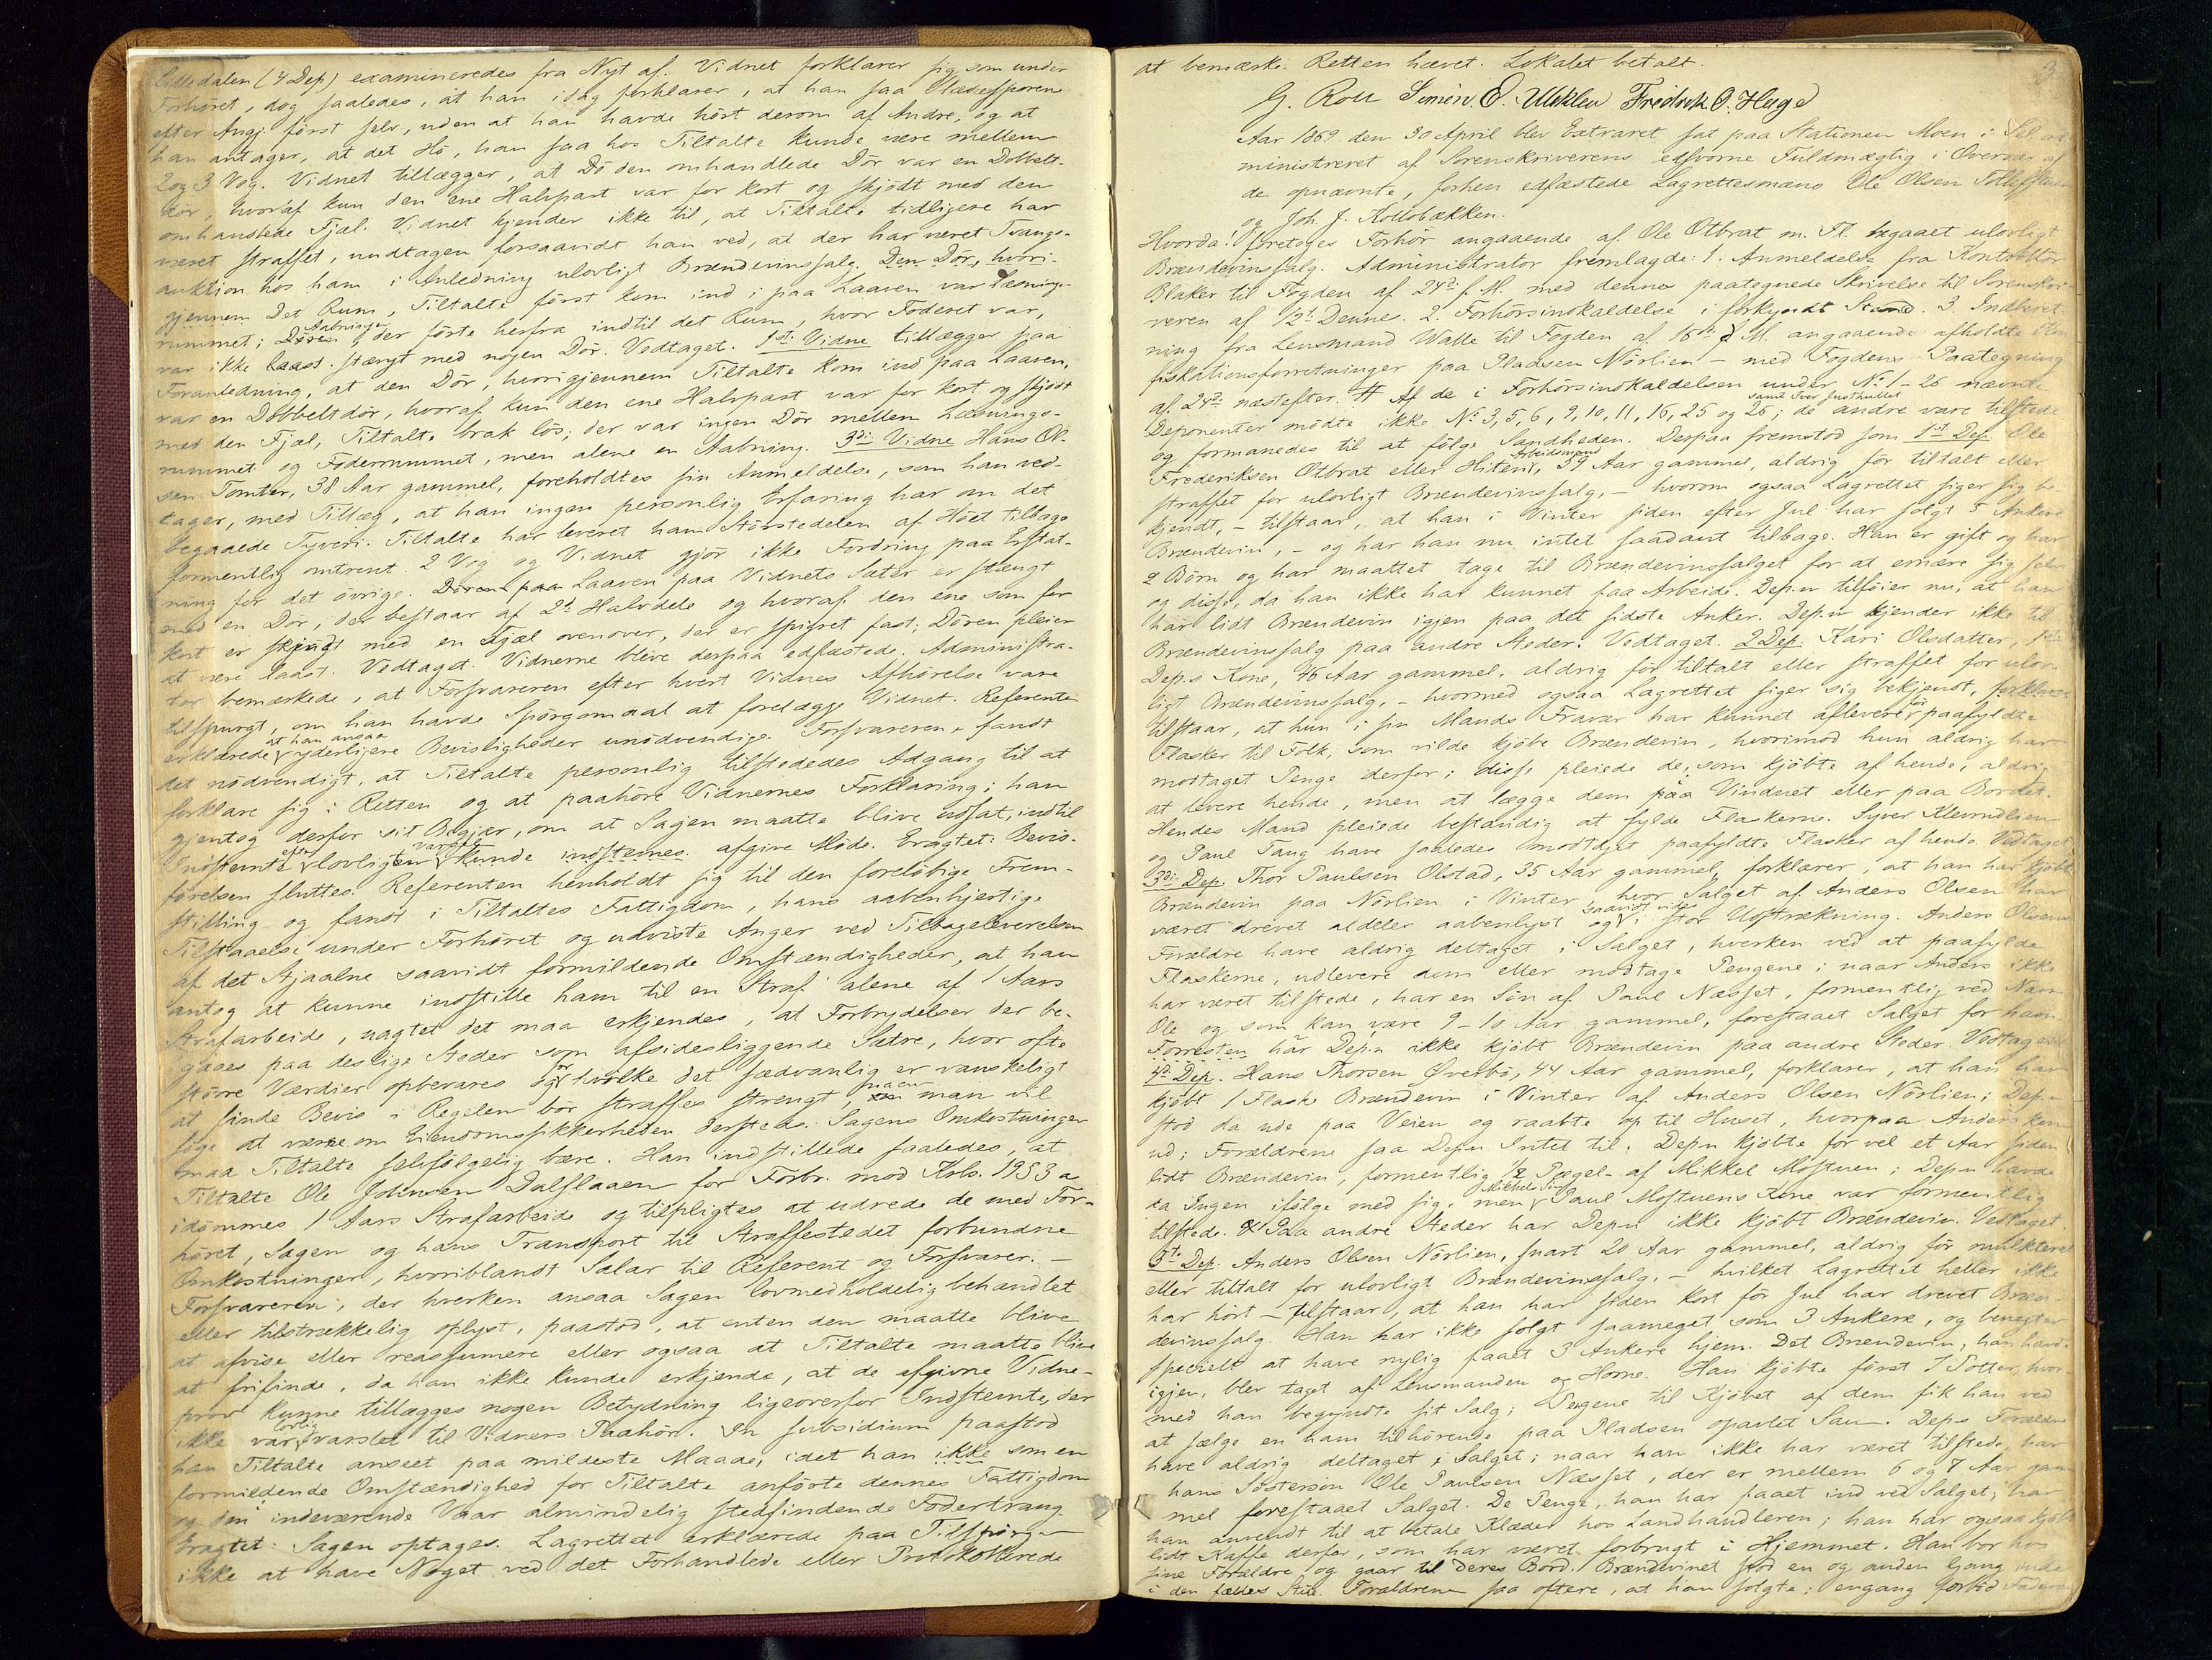 Lilledalen (4 Dep) examineredes fra Nyt af. Vidnet forklarer sig som under
Forhöret, dog saaledes, at han idag forklarer, at han saa Slædesporen
efter Angj. först selv, uden at han havde hört derom af Andre, og at
han antager, at det Hö, han saa hos Tiltalte kunde være mellem
2 og 3 Vog. Vidnet tillægger, at den omhandlede Dör var en Dobbelt-
dör, hvoraf kun den ene Halvpart var for kort og skjödt med den
omhandlede Fjæl. Vidnet kjender ikke til, at Tiltalte tidligere har
været straffet, undtagen forsaavidt han ved, at der har været Tvangs-
auktion hos ham i Anledning ulovligt Brændevinssalg. Den Dör, hvori-
gjennem Tiltalte först kom ind i paa Laaven var Læsnings-
rummet; Aabningen, der förte herfra indtil det Rum, hvor Foderet var,
var ikke stængt med nogen Dör. Vedtaget. 1ste Vidne tillægger paa
Foranledning, at den Dör, hvorigjennem Tiltalte kom ind paa Laaven,
var en Dobbeltdör, hvoraf kun den ene Halvpart var for kort og skjödt
med den Fjæl, Tiltalte brak lös; der var ingen Dör mellem Læsnings-
rummet og Foderrummet, men alene en Aabning. 3die Vidne Hans Ol-
sen Tomter, 38 Aar gammel, foreholdtes sin Anmeldelse, som han ved-
tager, med Tillæg, at han ingen personlig Erfaring har om det
begaaede Tyveri. Tiltalte har leveret ham Störstedelen af Höet tilbage
formentlig omtrent 2 Vog og Vidnet gjör ikke Fordring paa Erstat-
ning for det övrige. Laaven paa Vidnets Sæter er stængt
med en Dör, der bestaar af 2de Halvdele og hvoraf den ene som for
kort er skjödt med en Fjæl ovenover, der er spigret fast; Dören pleier
at være laast. Vedtaget. Vidnerne bleve derpaa edfæstede. Administra-
tor bemærkede, at Forsvareren efter hvert Vidnes Afhörelse var
tilspurgt, om han havde Spörgsmaal at forelægge Vidnet. Referenten
erklærede at han ansaa yderligere Bevisligheder unödvendige. Forsvareren fandt
det nödvendigt, at Tiltalte personlig tilstededes Adgang til at
forklare sig i Retten og at paahöre Vidnernes Forklaring; han
gjentog derfor sit Begjær, om at Sagen maatte blive udsat, indtil
Indstevnte efter lovligen Varsel kunde afgive Möde. Eragtet: Bevis-
förelsen sluttes. Referenten henholdt sig til den foreløbige Frem-
stilling og fandt i Tiltaltes Fattigdom, hans aabenhjertige
Tilstaaelse under Forhöret og udviste Anger ved Tilbageleverelsen
af det Stjaalne saavidt formildende Omstændigheder, at han
antog at kunne indstille ham til en Straf alene af 1 Aars
Strafarbeide, uagtet det maa erkjendes, at Forbrydelser der be-
gaaes paa deslige Steder som afsidesliggende Sætre, hvor ofte
större Værdier opbevares og for hvilke det sædvanlig er vanskeligt
at finde Bevis i Regelen bör straffes strengt, naar man vil
söge at værne om Eiendomssikkerheden dersteds. Sagens Omkostninger
maa Tiltalte selvfölgelig bære. Han indstillede saaledes, at
Tiltalte Ole Johnsen Dalslaaen for Forbr. mod Krls. 19 § 3 a
idömmes 1 Aars Strafarbeide og tilpligtes at udrede de med For-
höret, Sagen og hans Transport til Straffestedet forbundne
Omkostninger, hvoriblandt Salær til Referent og Forsvarer. –
Forsvareren, der hverken ansaa Sagen lovmedholdelig behandlet
eller tilstrækkelig oplyst, paastod, at enten den maatte blive
at afvise eller reassumere eller ogsaa at Tiltalte maatte blive
at frifinde, da han ikke kunde erkjende, at de afgivne Vidne-
prov kunne tillægges nogen Betydning ligeoverfor Indstevnte, der
ikke var lovlig varslet til Vidners Paahör. In subsidium paastod
han Tiltalte anseet paa mildeste Maade, idet han ikke som en
formildende Omstændighed for Tiltalte anförte dennes Fattigdom
og den indeværende Vaar almindelig stedfindende Fodertrang.
Eragtet: Sagen optages. Lagrettet erklærede paa Tilspörgen
ikke at have Noget ved det Forhandlede eller Protokollerede
at bemærke. Retten hævet. Lokalet betalt.
G. Roll Simen. E. Uleklev Fredrik O. Hage
Aar 1869 den 30 April blev Extraret sat paa Stationen Moen i Sel ad-
ministreret af Sorenskriverens edsvorne Fuldmægtig i Overvær af
de opnævnte, forhen edfæstede Lagrettesmænd Ole Olsen
og Joh. J. Kollobækken.
Hvorda: foretoges Forhör angaaende af Ole Otbrat m. Fl. begaaet ulovligt
Brændevinssalg. Administrator fremlagde: 1. Anmeldelse fra Kontrollör
Blaker til Fogden af 24de f. M. med dennes paategnede Skrivelse til Sorenskri-
veren af 12te Dennes. 2. Forhörsindkaldelse i forkyndt Stand. 3. Indberet-
ning fra Lensmand Walle til Fogden af 16de f. M. angaaende afholdte Kon-
fiskationsforretninger paa Pladsen Nörlien – med Fogdens Paategning
af 24de næstefter. Af de i Forhörsindkaldelsen under No 1–26 nævnte
Deponenter mödte ikke No 3, 5, 6, 9, 10, 11, 16, 25 og 26; de andre vare tilstede
og formanedes til at fölge Sandheden. Derpaa fremstod som 1ste Dep. Ole
Frederiksen Otbrat eller Hiten, Arbeidsmand 39 Aar gammel, aldrig för tiltalt eller
straffet for ulovligt Brændevinssalg, – hvorom ogsaa Lagrettet siger sig be-
kjendt, – tilstaar, at han i Vinter siden efter Jul har solgt 5 Ankere
Brændevin, – og har han nu intet saadant tilbage. Han er gift og har
2 Börn og har maattet tage til Brændevinssalget for at ernære sig selv
og disse, da han ikke har kunnet faa Arbeide. Dep.n tilföier nu, at han
har lidt Brændevin igjen paa det sidste Anker. Dep.n kjender ikke til
Brændevinssalg paa andre Steder. Vedtaget. 2 Dep. Kari Olsdatter, 1ste
Dep.s Kone, 46 Aar gammel, aldrig för tiltalt eller straffet for ulov-
ligt Brændevinssalg, – hvormed ogsaa Lagrettet siger sig bekjendt,
tilstaar, at hun i sin Mands Fravær har kunnet aflevere för paafyldte
Flasker til Folk, som vilde kjöbe Brændevin, hvorimod hun aldrig har
modtaget Penge derfor; disse pleiede de, som kjöbte af hende, aldrig
at levere hende, men at lægge dem i Vinduet eller paa Bordet.
Hendes Mand pleiede bestandig at fylde Flaskerne. Syver Kleundlien
og Paul Taug have saaledes modtaget paafyldte Flasker af hende. Vedtaget.
3die Dep. Thor Paulsen Olstad, 35 Aar gammel, forklarer, at han har kjöbt
Brændevin paa Nörlien i Vinter, hvor Salget af Anders Olsen har
været drevet aldeles aabenlyst og saavidt vides i stor Udstrækning. Anders Olsens
Forældre have aldrig deltaget i Salget, hverken ved at paafylde
Flaskerne, udlevere dem eller modtage Pengene; naar Anders ikke
har været tilstede, har en Sön af Paul Næsset, formentlig ved Navn
Ole og som kan være 9–10 Aar gammel, forestaaet Salget for ham.
Forresten har Dep.n ikke kjöbt Brændevin paa andre Steder. Vedtaget.
4de Dep. Hans Thorsen Øverbö, 44 Aar gammel, forklarer, at han har
kjöbt 1 Flaske Brændevin i Vinter af Anders Olsen Nörlien; Dep.n
stod da ude paa Veien og raabte op til Huset, hvorpaa Anders kom
ud; Forældrene saa Dep.n Intet til. Dep.n kjöbte for vel et Aar siden
lidt Brændevin, formentlig 2 Pægel af Mikkel Mostuen; Dep.n havde
da Ingen ifölge med sig, men Paul Mostuens Kone var formentlig
tilstede. Paa andre Steder har Dep.n ikke kjöbt Brændevin. Vedtaget.
5te Dep. Anders Olsen Nörlien, snart 20 Aar gammel, aldrig för mulkteret
eller tiltalt for ulovligt Brændevinssalg, – hvilket Lagrettet heller ikke
har hört – tilstaar, at han har siden kort för Jul har drevet Bræn-
devinssalg. Han har ikke solgt saameget som 3 Ankere, og benegter
specielt at have nylig faaet 3 Ankere hjem. Det Brændevin, han havde
igjen, blev taget af Lensmanden og Horne. Han kjöbte först 7 Potter, hvor-
med han begyndte sit Salg; Pengene til Kjöbet af dem fik han ved
at sælge en ham tilhörende paa Pladsen opavlet Sau. Dep.s Forældre
have aldrig deltaget i Salget; naar han ikke har været tilstede, har
hans Söstersön Ole Paulsen Næsset, der er mellem 6 og 7 Aar gam-
mel forestaaet Salget. De Penge, han har faaet ind ved Salget, har
han anvendt til at betale Klæder hos Landhandleren; han har ogsaa kjöbt
lidt Kaffe derfor, som har været forbrugt i Hjemmet. Han bor hos
sine Forældre og gaar til deres Bord. Brændevinet stod en og anden Gang inde
i den fælles Stue. Forældrene saa oftere, at han solgte; engang forböd Faderen